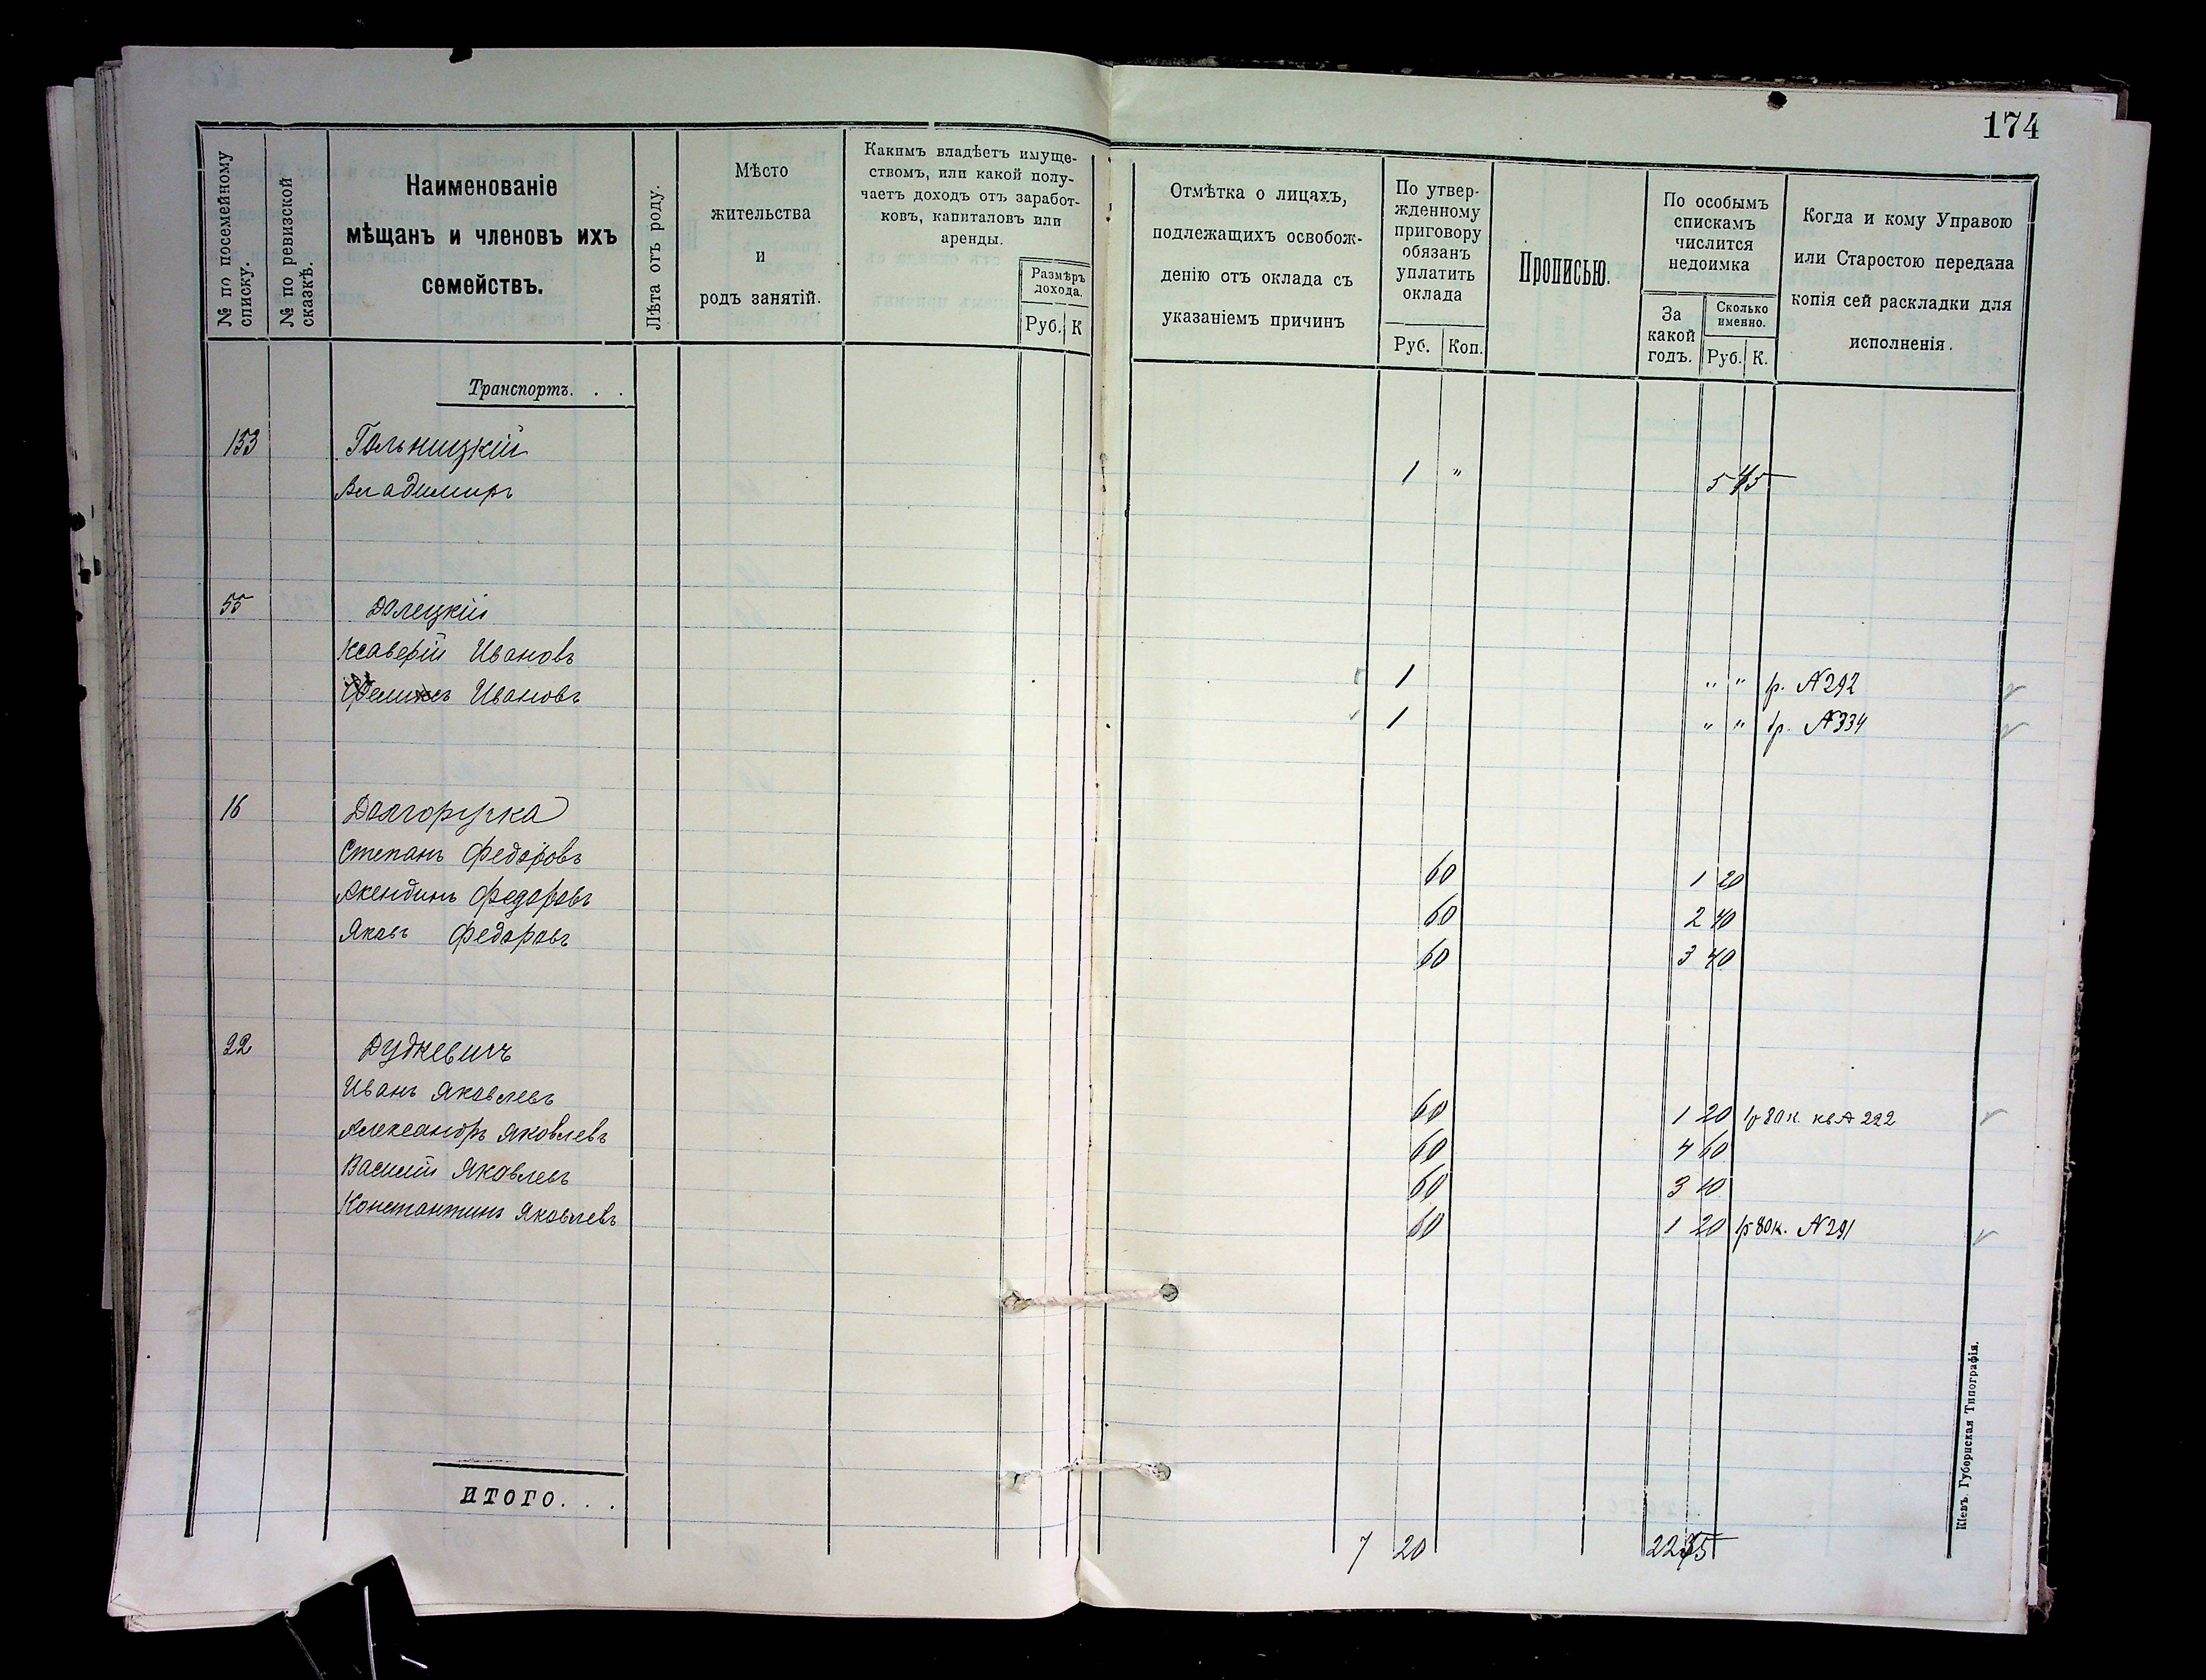 174
№ по посемейному списку.
№ по ревизской сказкѣ.
Наименованіе
мѣщанъ и членовъ ихъ
семействъ.
Лѣта отъ роду.
Мѣсто
жительства
и
родъ занятій.
Какимъ владѣетъ имуще-
ствомъ, или какой полу-
чаетъ доходъ отъ заработ-
ковъ, капиталовъ или
аренды.
Размѣръ
дохода.
Руб. К
Отмѣтка о лицахъ,
подлежащихъ освобож-
денію отъ оклада съ
указаніемъ причинъ
По утвер-
жденному
приговору
обязанъ
уплатить
оклада
Руб. Коп.
Прописью.
По особымъ
спискамъ
числится
недоимка
За
какой
годъ.
Сколько
именно.
Руб. К.
Когда и кому Управою
или Старостою передана
копія сей раскладки для
исполненія.
Транспортъ. . .
153 Гольницкій
Владимиръ 1 " 5 45
55 Долецкій
Ксаверій Ивановъ 1 " " р. №292
Феликсъ Ивановъ 1 " " 1р. №334
16 Долгоручка
Степанъ Федоровъ 60 1 20
Акендинъ Федоровъ 60 2 40
Яковъ Федоровъ 60 3 40
22 Дудкевичъ
Иванъ Яковлевъ 60 1 20 1р 80к. кв № 292
Александръ Яковлевъ 60 4 60
Василій Яковлевъ 60 3 10
Константинъ Яковлевъ 60 1 20 1р 80к. №291
ИТОГО. . .
7 20
Кіевъ. Губернская Типографія.